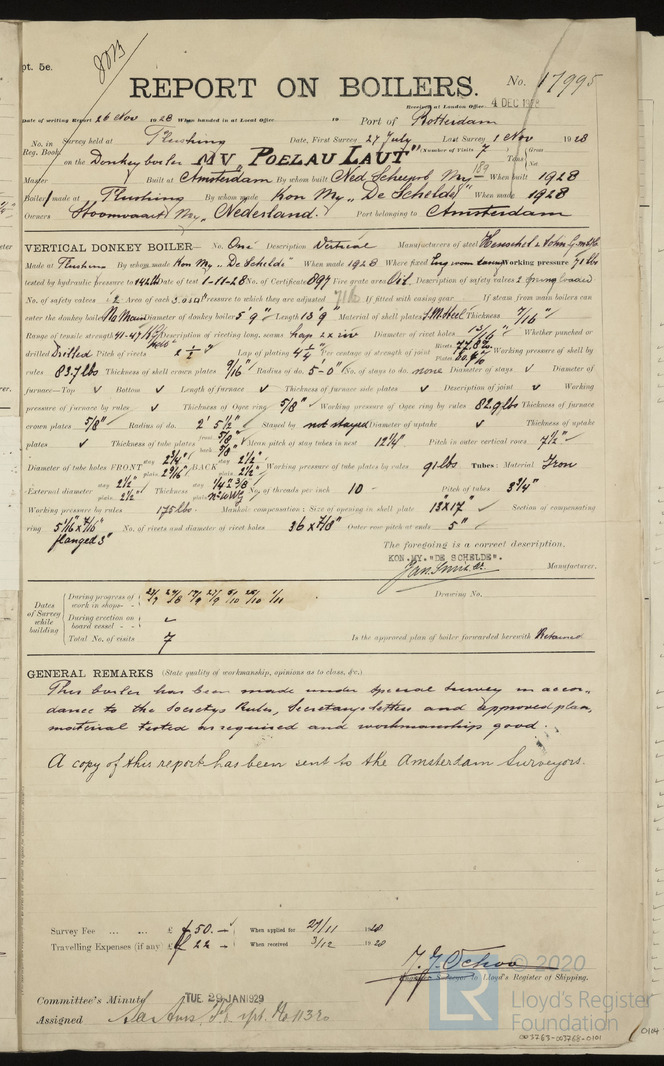 pt. 5e.
8013
REPORT ON BOILERS.
No. 17995
Received at London Office 4 DEC 1928
Date of writing Report 26 Nov 1928 When handed in at Local Office 19 Port of Rotterdam
No. in Reg. Book. Survey held at Flushing Date, First Survey 27 July Last Survey 1 Nov 1928
on the Donkey boiler MV "POELAU LAUT" (Number of Visits 7) Tons Gross Net
Master Built at Amsterdam By whom built Ned Scheepsb My 189 When built 1928
Boiler made at Flushing By whom made Kon My "De Schelde" When made 1928
Owners Stoomvaart My "Nederland. Port belonging to Amsterdam
VERTICAL DONKEY BOILER— No. One Description Vertical Manufacturers of steel Henschel & Sohn GmbH
Made at Flushing By whom made Kon My "De Schelde" When made 1928 Where fixed Eng room casing Working pressure 71 lb
tested by hydraulic pressure to 142 lb Date of test 1-11-28 No. of Certificate 897 Fire grate area Oil Description of safety valves 2 spring loaded
No. of safety valves 2 Area of each 3.0 Pressure to which they are adjusted 71 lb If fitted with easing gear If steam from main boilers can
enter the donkey boiler No Main Diameter of donkey boiler 5' 9" Length 13' 9" Material of shell plates S.M. Steel Thickness 7/16"
Range of tensile strength 41-47 Description of riveting long. seams lap 2x riv Diameter of rivet holes 13/16" Whether punched or
drilled Drilled Pitch of rivets 2 1/2" Lap of plating 4 1/4" Per centage of strength of joint Rivets 77.8% Plates Working pressure of shell by
rules 83.7 lbs Thickness of shell crown plates 9/16" Radius of do. 5'-0" No. of stays to do. none Diameter of stays ✓ Diameter of
furnace—Top ✓ Bottom ✓ Length of furnace ✓ Thickness of furnace side plates ✓ Description of joint ✓ Working
pressure of furnace by rules ✓ Thickness of Ogee ring 5/8" Working pressure of Ogee ring by rules 82.9 lbs Thickness of furnace
crown plates 5/8" Radius of do. 2' 5 1/2" Stayed by not stayed Diameter of uptake ✓ Thickness of uptake
plates ✓ Thickness of tube plates front 5/8" back 5/8" Mean pitch of stay tubes in nest 12 1/4" Pitch in outer vertical rows 7 1/2"
Diameter of tube holes FRONT stay 2 3/4" plain 2 9/16" BACK stay 2 1/2" plain 2 1/2" Working pressure of tube plates by rules 91 lbs Tubes: Material Iron
External diameter stay 2 1/2" plain 2 1/2" Thickness stay 1/4 & 3/8 plain No. of threads per inch 10 Pitch of tubes 3 3/4"
Working pressure by rules 175 lbs Manhole compensation: Size of opening in shell plate 13" x 17" Section of compensating
ring 5 1/16" x 7/16" No. of rivets and diameter of rivet holes 36 x 7/8" Outer row pitch at ends 5"
flanged 3"
The foregoing is a correct description,
KON. MY. "DE SCHELDE".
Manufacturer.
Dates of Survey while building
During progress of work in shops - - 27/7 17/9 27/9 5/10 1/11
During erection on board vessel - - -
Total No. of visits 7
Drawing No.
Is the approved plan of boiler forwarded herewith Retained
GENERAL REMARKS (State quality of workmanship, opinions as to class, &c.)
This boiler has been made under special survey in accor-
dance to the Societys Rules, Secretarys letters and approved plan,
material tested as required and workmanship good.
A copy of this report has been sent to the Amsterdam Surveyors.
Survey Fee ... ... £ ƒ 50.— When applied for 27/11 1928
Travelling Expenses (if any) £ ƒ 22 — When received 3/12 1928
J. J. Ochoo
Surveyor to Lloyd's Register of Shipping.
Committee's Minute TUE. 29 JAN 1929
Assigned
© 2020
LR
Lloyd's Register
Foundation
003763-003768-0101
0104